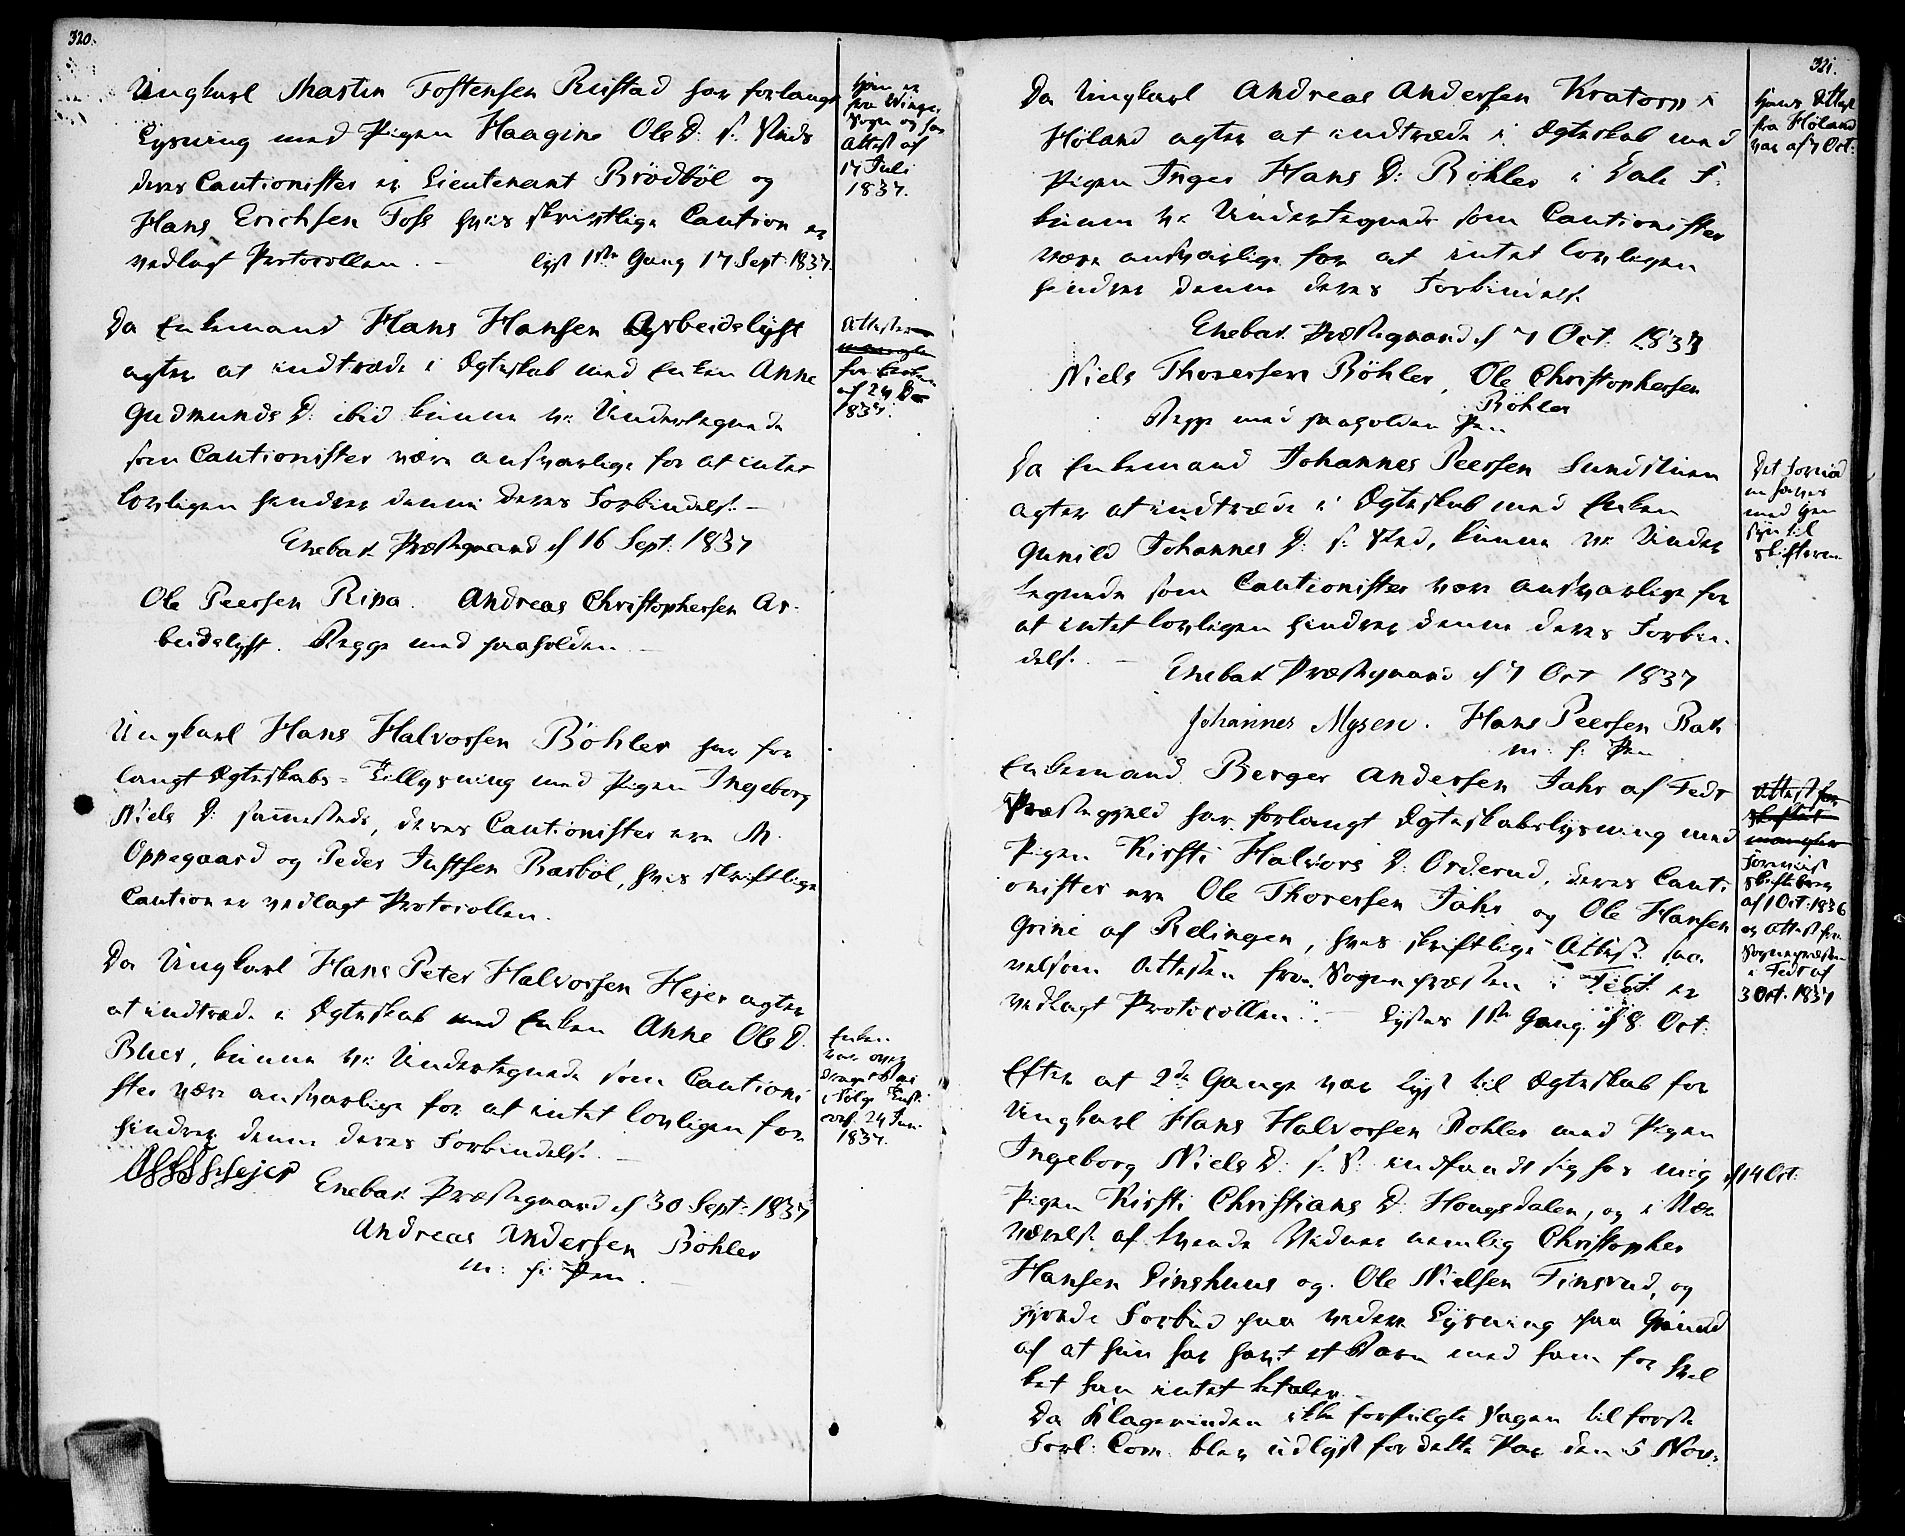 320.
Ungkarl Martin Tostensen Rustad har forlangt
Lysning med Pigen Haagine Ole D: s. Steds
deres Cautionister er Lieutenant Brödböl og
Hans Erichsen Foss hvis skriftlige Caution er
vedlagt Protocollen. - lyst 1ste Gang 17 Sept: 1837.
Hun er
fra Winger
Sogn og har
Attest af
17 Juli
1837.
Da Enkemand Hans Hansen Arbeidslyst
agter at indtræde i Ægteskab med Enken Anne
Gudmunds D: ibid kunne vi Undertegnede
som Cautionister være ansvarlige for at intet
lovligen hindrer denne deres Forbindelse. -
Enebak Præstegaard d 16 Sept: 1837
Ole Peersen Ripa. Andreas Christophersen Ar-
beidslyst. Begge med paaholden -
Attester
mangler
for Enken
af 24
1837.
Ungkarl Hans Halvorsen Böhler har for
langt Ægteskabs-Tillysning med Pigen Ingeborg
Niels D: sammesteds, deres Cautionister ere M.
Oppegaard og Peder Justsen Barböl, hvis skriftlige
Caution er vedlagt Protocollen.
Da Ungkarl Hans Peter Halvorsen Hejer agter
at indtræde i Ægteskab med Enken Anne Ole D.
Buer, kunne vi Undertegnede som Cautioni
ster være ansvarlige for at intet lovligen for
hindrer denne deres Forbindelse. -
Hejer
Enebak Præstegaard d 30 Sept: 1837
Andreas Andersen Böhler
m: f: Pen. -
Enken
har over
draget Boet
i Følge
af 24 Jun:
1837.
321.
Da Ungkarl Andreas Andersen Kratorp i
Höland agter at indtræde i Ægteskab med
Pigen Inger Hans D: Böhler i
kunne vi Undertegnede som Cautionister
være ansvarlige for at intet lovligen
hindrer denne deres Forbindelse.
Enebak Præstegaard d 7 Oct: 1837
Niels Thoresen Böhler, Ole Christophersen
Böhler
Begge med paaholden Pen
Hans Attest
fra Höland
var af 7 Oct:
Da Enkemand Johannes Peersen Sundstuen
agter at indtræde i Ægteskab med Enken
Gunild Johannes D: s. Sted, kunne vi Under
tegnede som Cautionister være ansvarlige for
at intet lovligen hindrer denne deres Forbin-
delse. - Enebak Præstegaard d 7 Oct 1837
Johannes Mysen. Hans Peersen Bak
m: f: Pen
Det fornød
ne haves
med Hen
syn til
Skifterne
Enkemand Berger Andersen Jahr af Fedt
Præstegjeld har forlangt Ægteskabslysning med
Pigen Kirsti Halvors D: Orderud, deres Cauti
onister ere Ole Thoresen Jahr og Ole Hansen
Grine af Relingen, hvis skriftlige Attest saa
velsom Attesten fra Sognepræsten i Fedt er
vedlagt Protocollen. - Lystes 1ste Gang d 8 Oct:
Attest for
Skiftet
mangler
Forevist
Skiftebrev
af 1 Oct: 1836
og Attest fra
Sognepræsten
i Fedt af
3 Oct: 1837
Efter at 2de Gange var lyst til Ægteskab for
Ungkarl Hans Halvorsen Bohler med Pigen
Ingeborg Niels D: s. S: indfandt sig hos mig d 14 Oct:
Pigen Kirsti Christians D: Hougsdalen, og i Nær
værelse af tvende Vidner nemlig Christopher
Hansen Tinghuus og Ole Nielsen Finsrud, og
gjorde Forbud paa videre Lysning paa Grund
af at hun har havt et Barn med ham for hvil
ket han intet betaler. -
Da Klagerinden ikke forfulgte Sagen til forste
Forl: Com: blev udlyst for dette Par den 5 Nov: